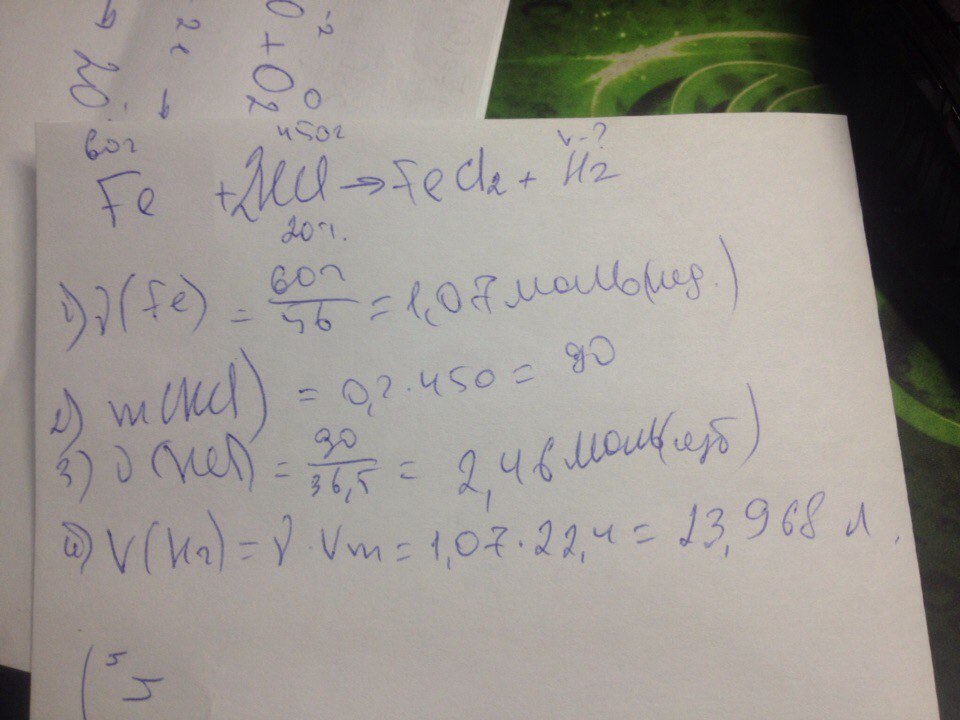 60г 450г V-?
Fe + 2HCl → FeCl₂ + H₂
20%.
1) ν(Fe) = 60г/56 = 1,07 моль (нед.)
2) m(HCl) = 0,2·450 = 90
3) ν(HCl) = 90/36,5 = 2,46 моль (изб)
4) V(H₂) = ν·Vm = 1,07·22,4 = 23,968 л.